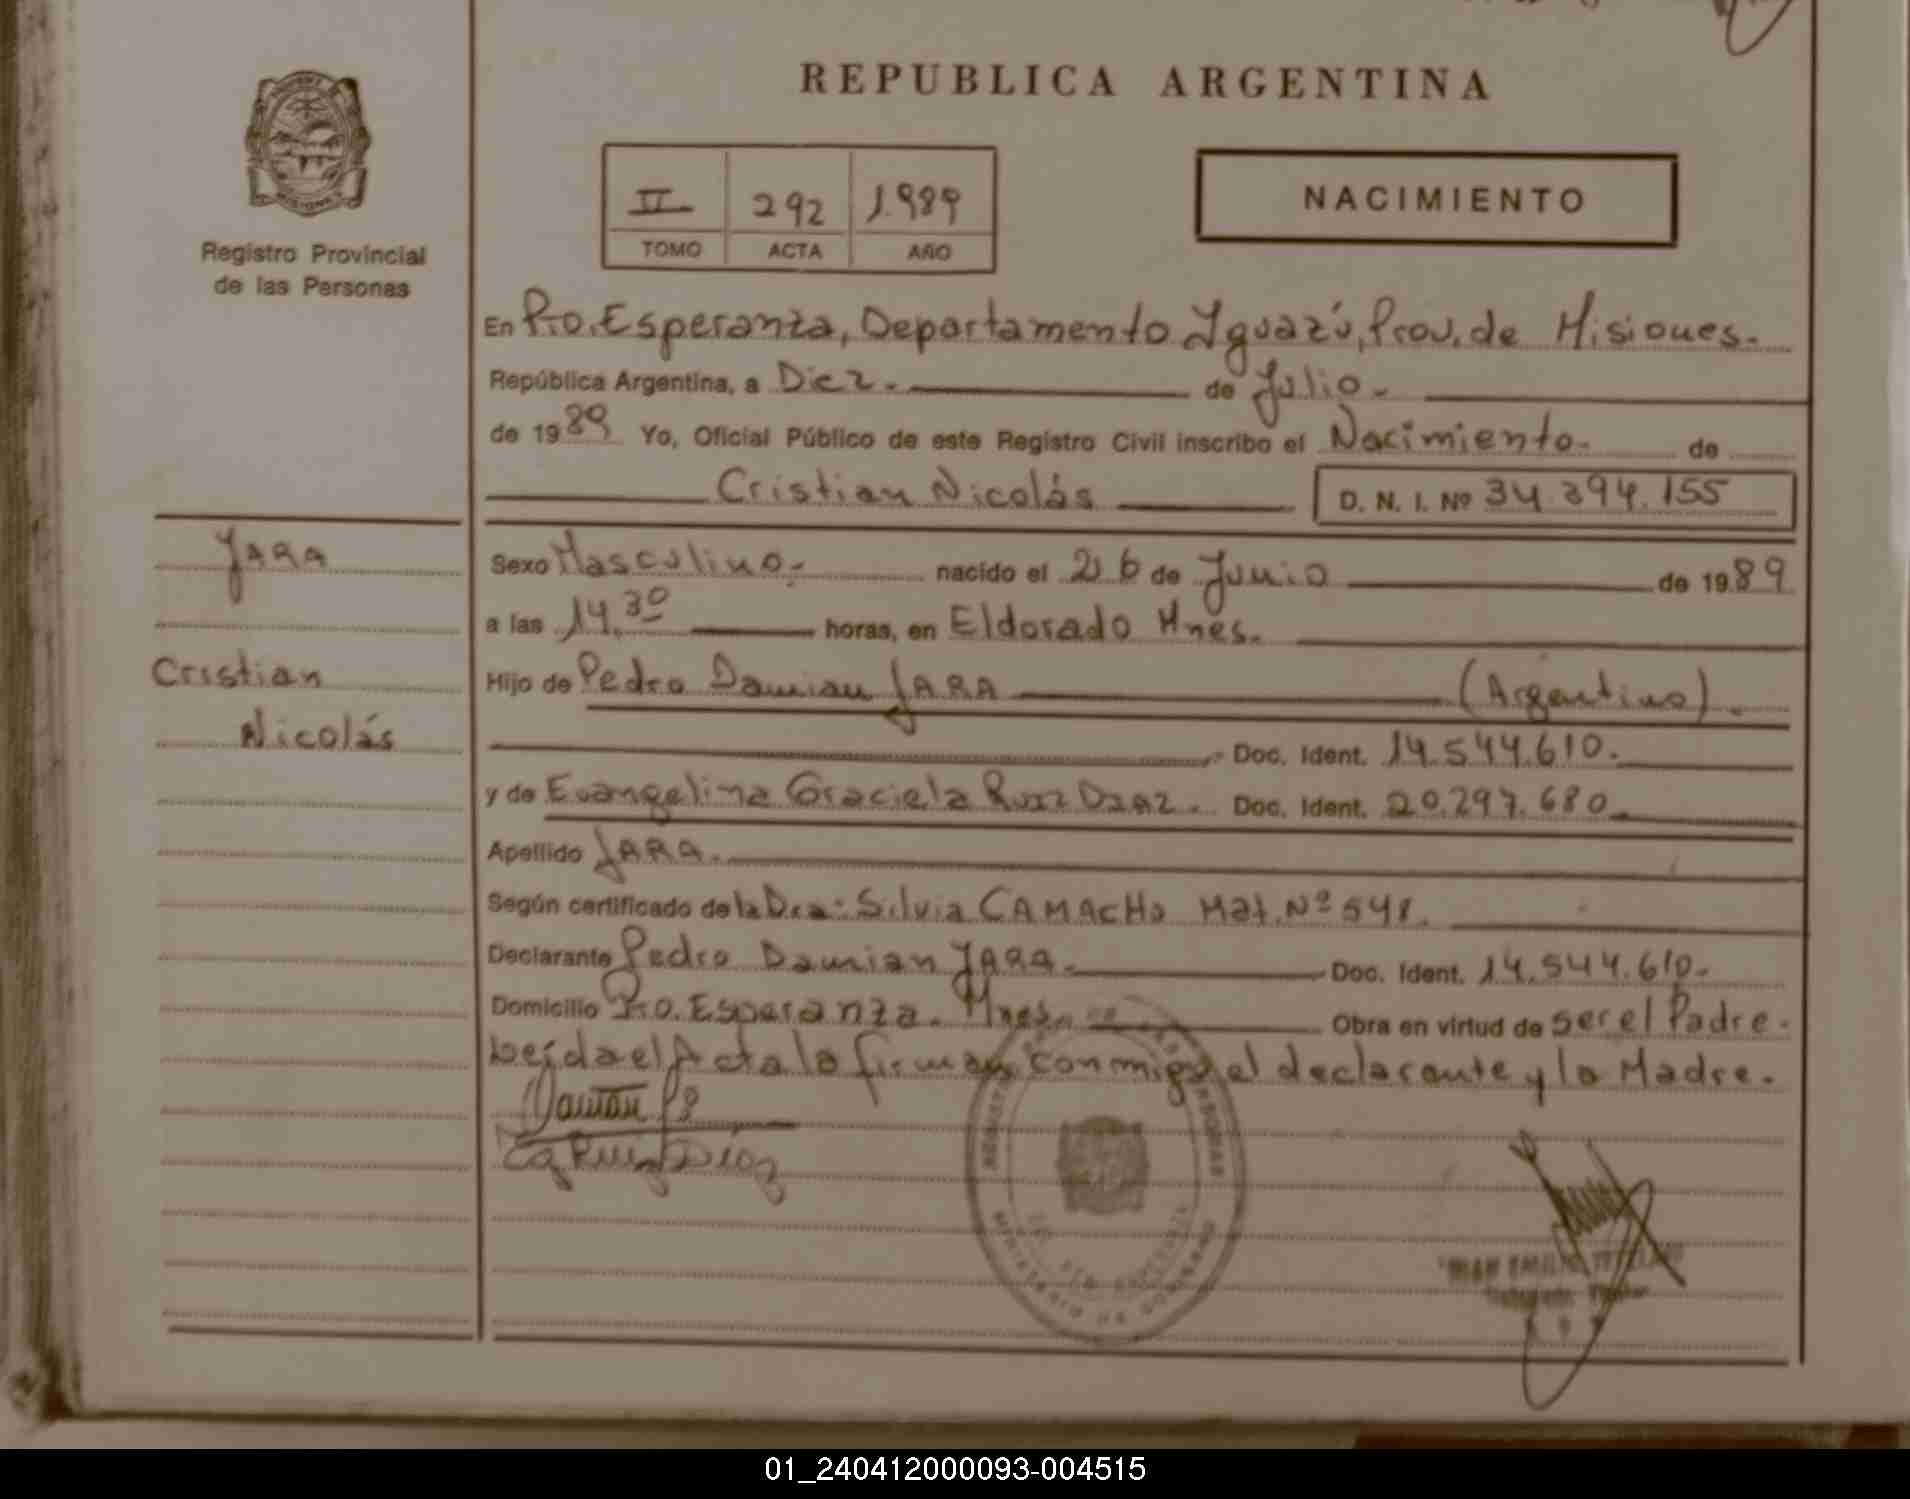 REPUBLICA ARGENTINA
II 292 1.989
TOMO ACTA AÑO
NACIMIENTO
Registro Provincial
de las Personas
En Pto. Esperanza, Departamento Yguazú, Prov. de Misiones.
República Argentina, a Diez. de Julio.
de 1989 Yo, Oficial Público de este Registro Civil inscribo el Nacimiento. de
Cristian Nicolás D. N. I. Nº 34.394.155
JARA
Cristian
Nicolás
Sexo Masculino. nacido el 26 de Junio de 1989
a las 14.30 horas, en Eldorado Mnes.
Hijo de Pedro Damian JARA (Argentino).
Doc. Ident. 14.544.610.
y de Evangelina Graciela Ruiz Diaz. Doc. Ident. 20.297.680
Apellido JARA.
Según certificado de la Dra: Silvia CAMACHO Mat. Nº 548.
Declarante Pedro Damian JARA. Doc. Ident. 14.544.610.
Domicilio Pto. Esperanza. Mnes. Obra en virtud de ser el Padre.
Leída el Acta la firman conmigo el declarante y la Madre.
Ruiz Díaz
MINISTERIO DE GOBIERNO
01_240412000093-004515